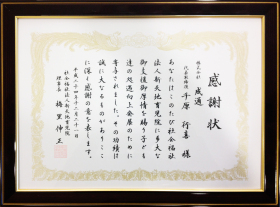 感謝状
株式会社 成通
代表取締役 平原 行喜 様
あなたはこのたび社会福祉
法人新天地育児院に多大な
御支援御厚情を賜り子ども
達の処遇向上発展のために
寄与されました。その功績は
誠に大なるものがありここ
に深く感謝の意を表します。
平成二十四年十二月二十一日
社会福祉法人新天地育児院
理事長 梅里伸正